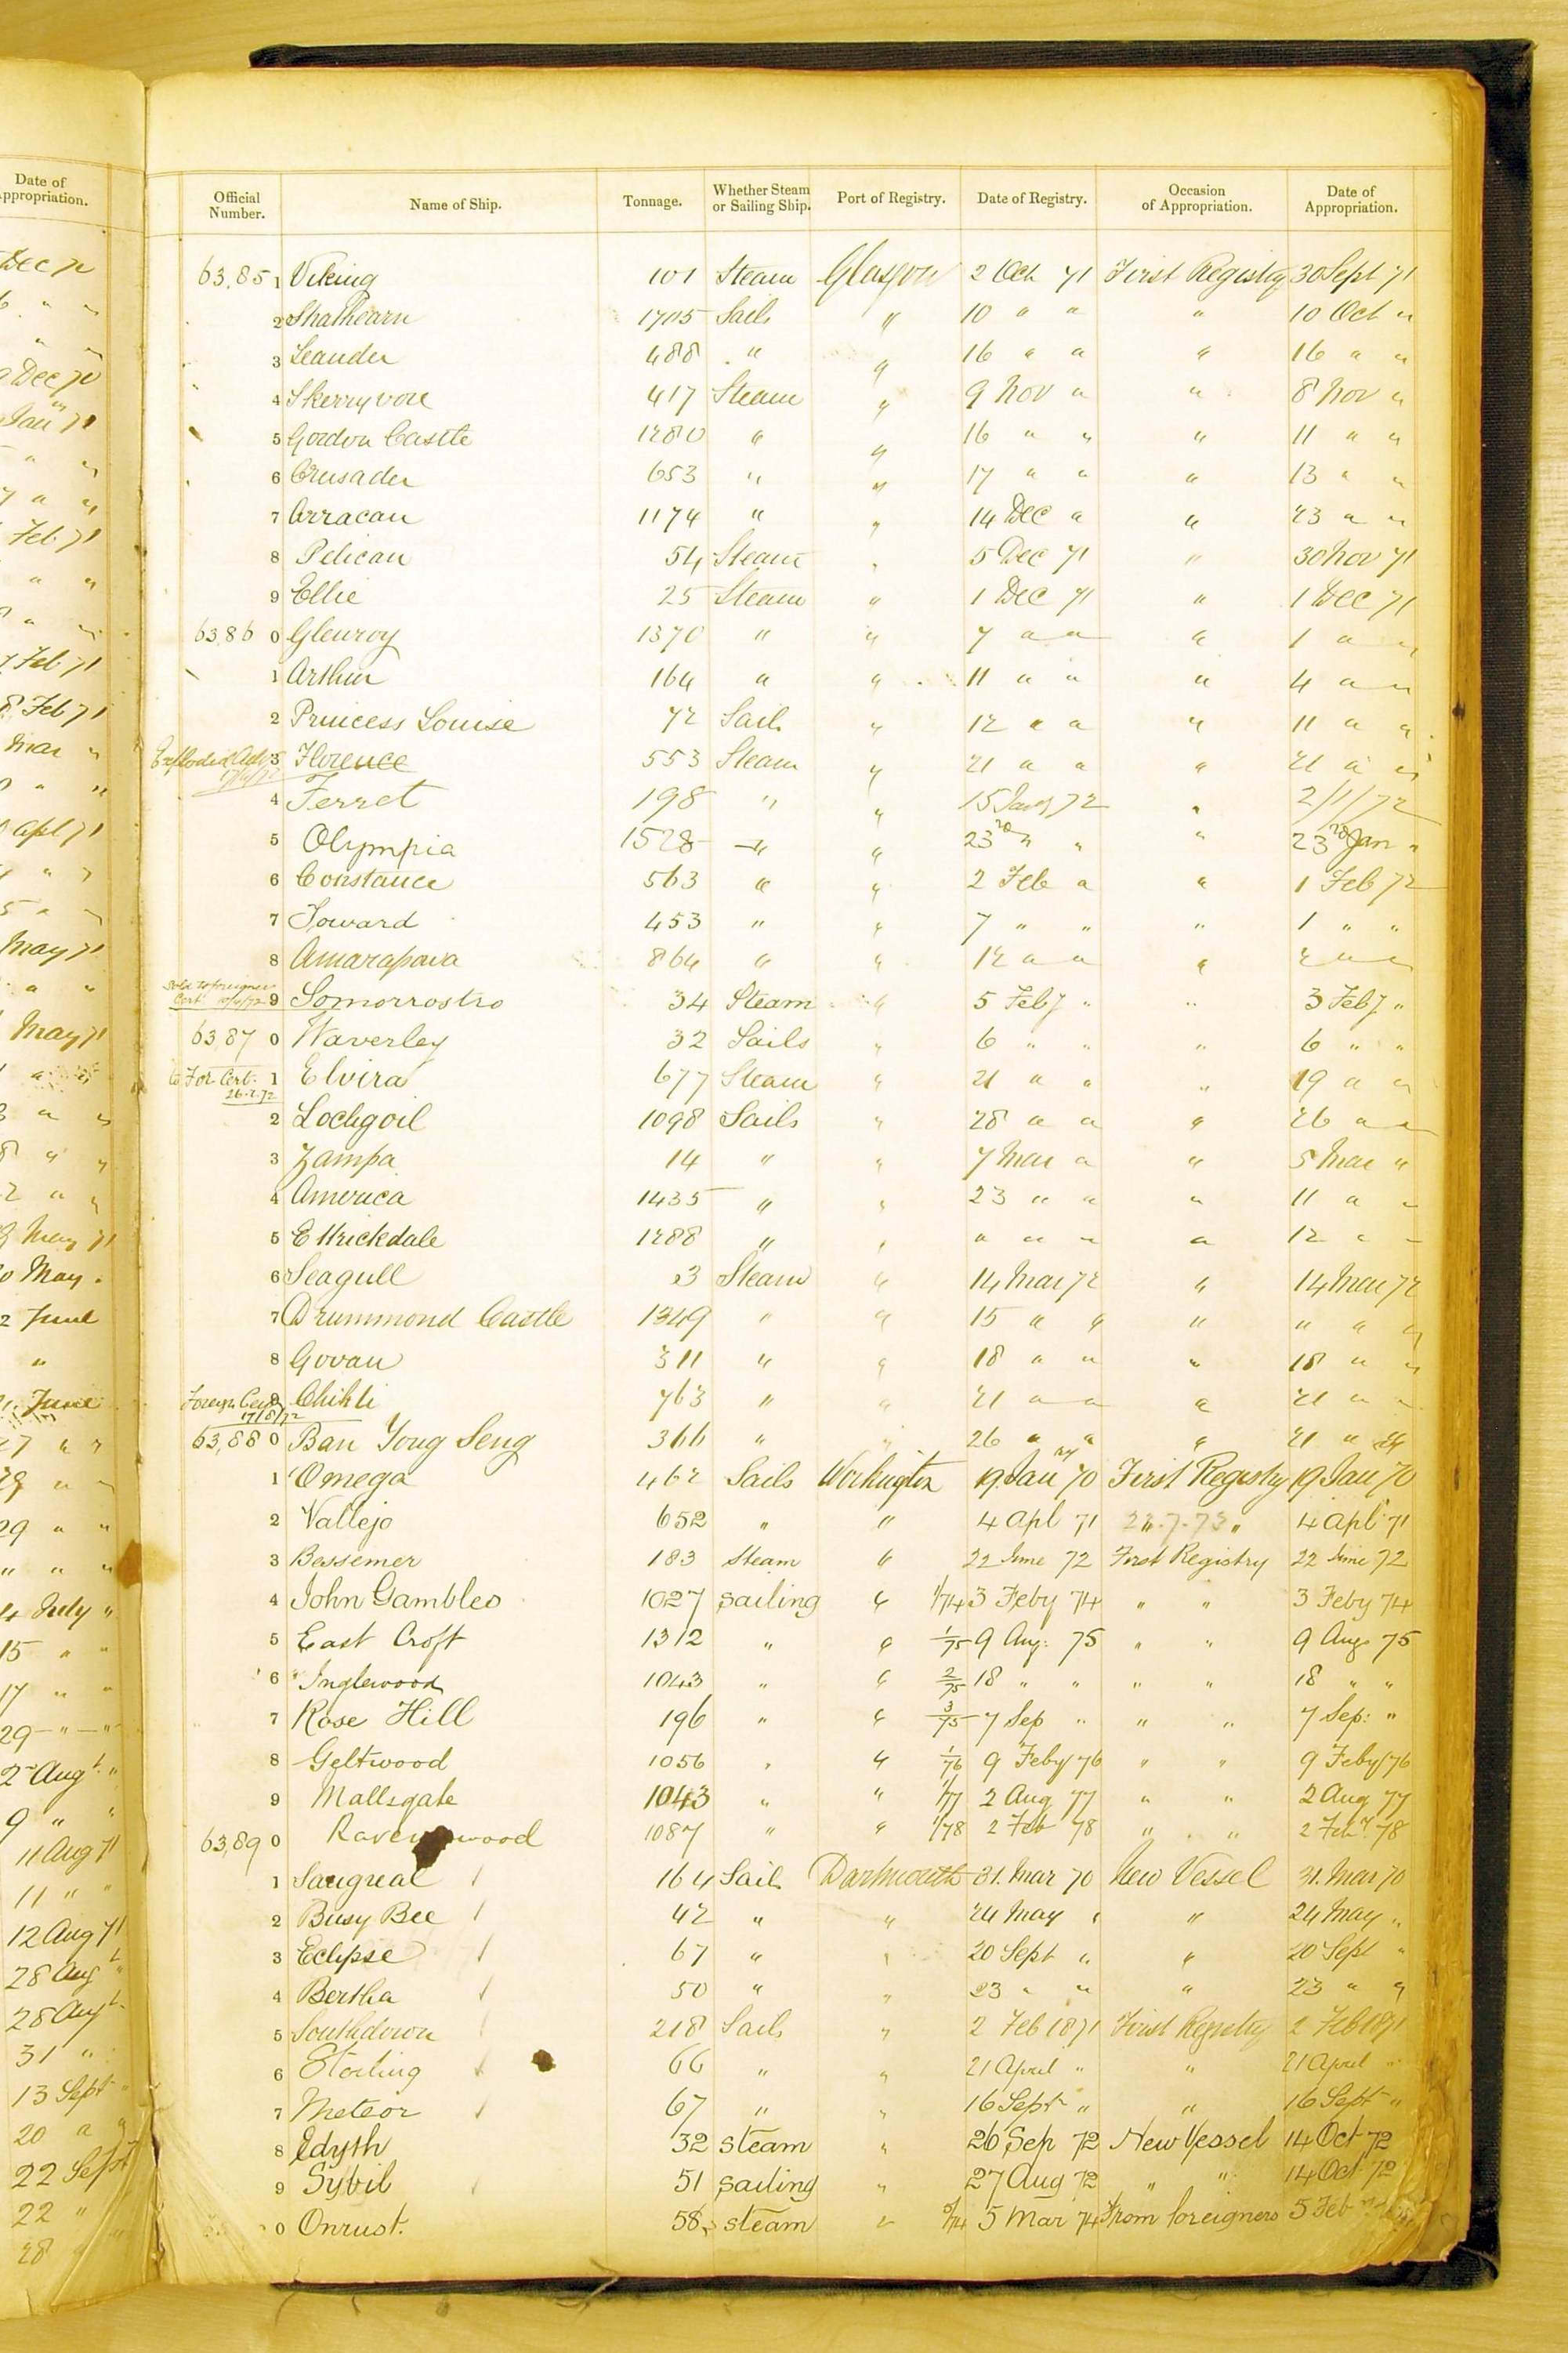 Date of
Appropriation.
Dec 70
Dec 70
Jany 71
Feb 71
Feb 71
8 Feb 71
Mar "
apl 71
May 71
May 71
May 71
May .
2 June
"
June
27 " "
29 " "
" " "
4 July "
15 " "
17 " "
29 - " - "
2 Augt "
9 " "
11 Aug 71
11 " "
12 Aug 71
28 Augt "
28 Augt
31 "
13 Sept "
20 " "
22 Sept
22 "
28
Official Number. Name of Ship. Tonnage. Whether Steam or Sailing Ship. Port of Registry. Date of Registry. Occasion of Appropriation. Date of Appropriation.
63,85 1 Viking 101 Steam Glasgow 2 Oct 71 First Registry 30 Sept 71
2 Strathearn 1705 Sails " 10 " " " 10 Oct "
3 Leander 488 " " 16 " " " 16 " "
4 Skerryvore 417 Steam " 9 Nov " " 8 Nov "
5 Gordon Castle 1280 " " 16 " " " 11 " "
6 Crusader 653 " " 17 " " " 13 " "
7 Arracan 1174 " " 14 Dec " " 23 " "
8 Pelican 54 Steam " 5 Dec 71 " 30 Nov 71
9 Ellie 25 Steam " 1 Dec 71 " 1 Dec 71
63,86 0 Glenroy 1370 " " 7 " " " 1 " "
1 Arthur 164 " " 11 " " " 4 " "
2 Princess Louise 72 Sails " 12 " " " 11 " "
Exploded 3 Florence 553 Steam " 21 " " " 21 " "
4 Ferret 198 " " 15 Jany 72 " 2/1/72
5 Olympia 1528 " " 23rd " " " 23rd Jan "
6 Constance 563 " " 2 Feb " " 1 Feb 72
7 Toward 453 " " 7 " " " 1 " "
8 Amarapoora 864 " " 12 " " " 2 " "
Sold to foreigners Cert 9 Somorrostro 34 Steam " 5 Feby " " 3 Feby "
63,87 0 Waverley 32 Sails " 6 " " " 6 " "
For Cert. 26.2.72 1 Elvira 677 Steam " 21 " " " 19 " "
2 Lochgoil 1098 Sails " 28 " " " 26 " "
3 Zampa 14 " " 7 Mar " " 5 Mar "
4 America 1435 " " 23 " " " 11 " "
5 Ettrickdale 1288 " " " " " " 12 " "
6 Seagull 3 Steam " 14 Mar 72 " 14 Mar 72
7 Drummond Castle 1349 " " 15 " " " " " "
8 Govan 311 " " 18 " " " 18 " "
Foreign Cert 17/8/72 9 Chihli 763 " " 21 " " " 21 " "
63,88 0 Ban Yong Seng 366 " " 26 " " " 21 " "
1 Omega 462 Sails Workington 19 Jany 70 First Registry 19 Jan 70
2 Vallejo 652 " " 4 Apl 71 22.7.73 " 4 Apl 71
3 Bessemer 183 Steam " 22 June 72 First Registry 22 June 72
4 John Gambles 1027 sailing " 1/74 3 Feby 74 " " 3 Feby 74
5 East Croft 1312 " " 1/75 9 Aug: 75 " " 9 Aug 75
6 Inglewood 1043 " " 2/75 18 " " " " 18 " "
7 Rose Hill 196 " " 3/75 7 Sep " " " 7 Sep: "
8 Geltwood 1056 " " 1/76 9 Feby 76 " " 9 Feby 76
9 Mallsgate 1043 " " 1/77 2 Aug 77 " " 2 Aug 77
63,89 0 Ravenswood 1087 " " 1/78 2 Feb 78 " " 2 Feby 78
1 Sangreal 164 Sails Dartmouth 31. Mar 70 New Vessel 31. Mar 70
2 Busy Bee 42 " " 24 May " " 24 May "
3 Eclipse 67 " " 20 Sept " " 20 Sept "
4 Bertha 50 " " 23 " " " 23 " "
5 Southdown 218 Sails " 2 Feb 1871 First Registry 2 Feb 1871
6 Storling 66 " " 21 April " " 21 April "
7 Meteor 67 " " 16 Sept " " 16 Sept "
8 Edyth 32 steam " 26 Sep 72 New Vessel 14 Oct 72
9 Sybil 51 sailing " 27 Aug 72 " " 14 Oct 72
0 Onrust. 58 steam " 5 Mar 74 From foreigners 5 Feb